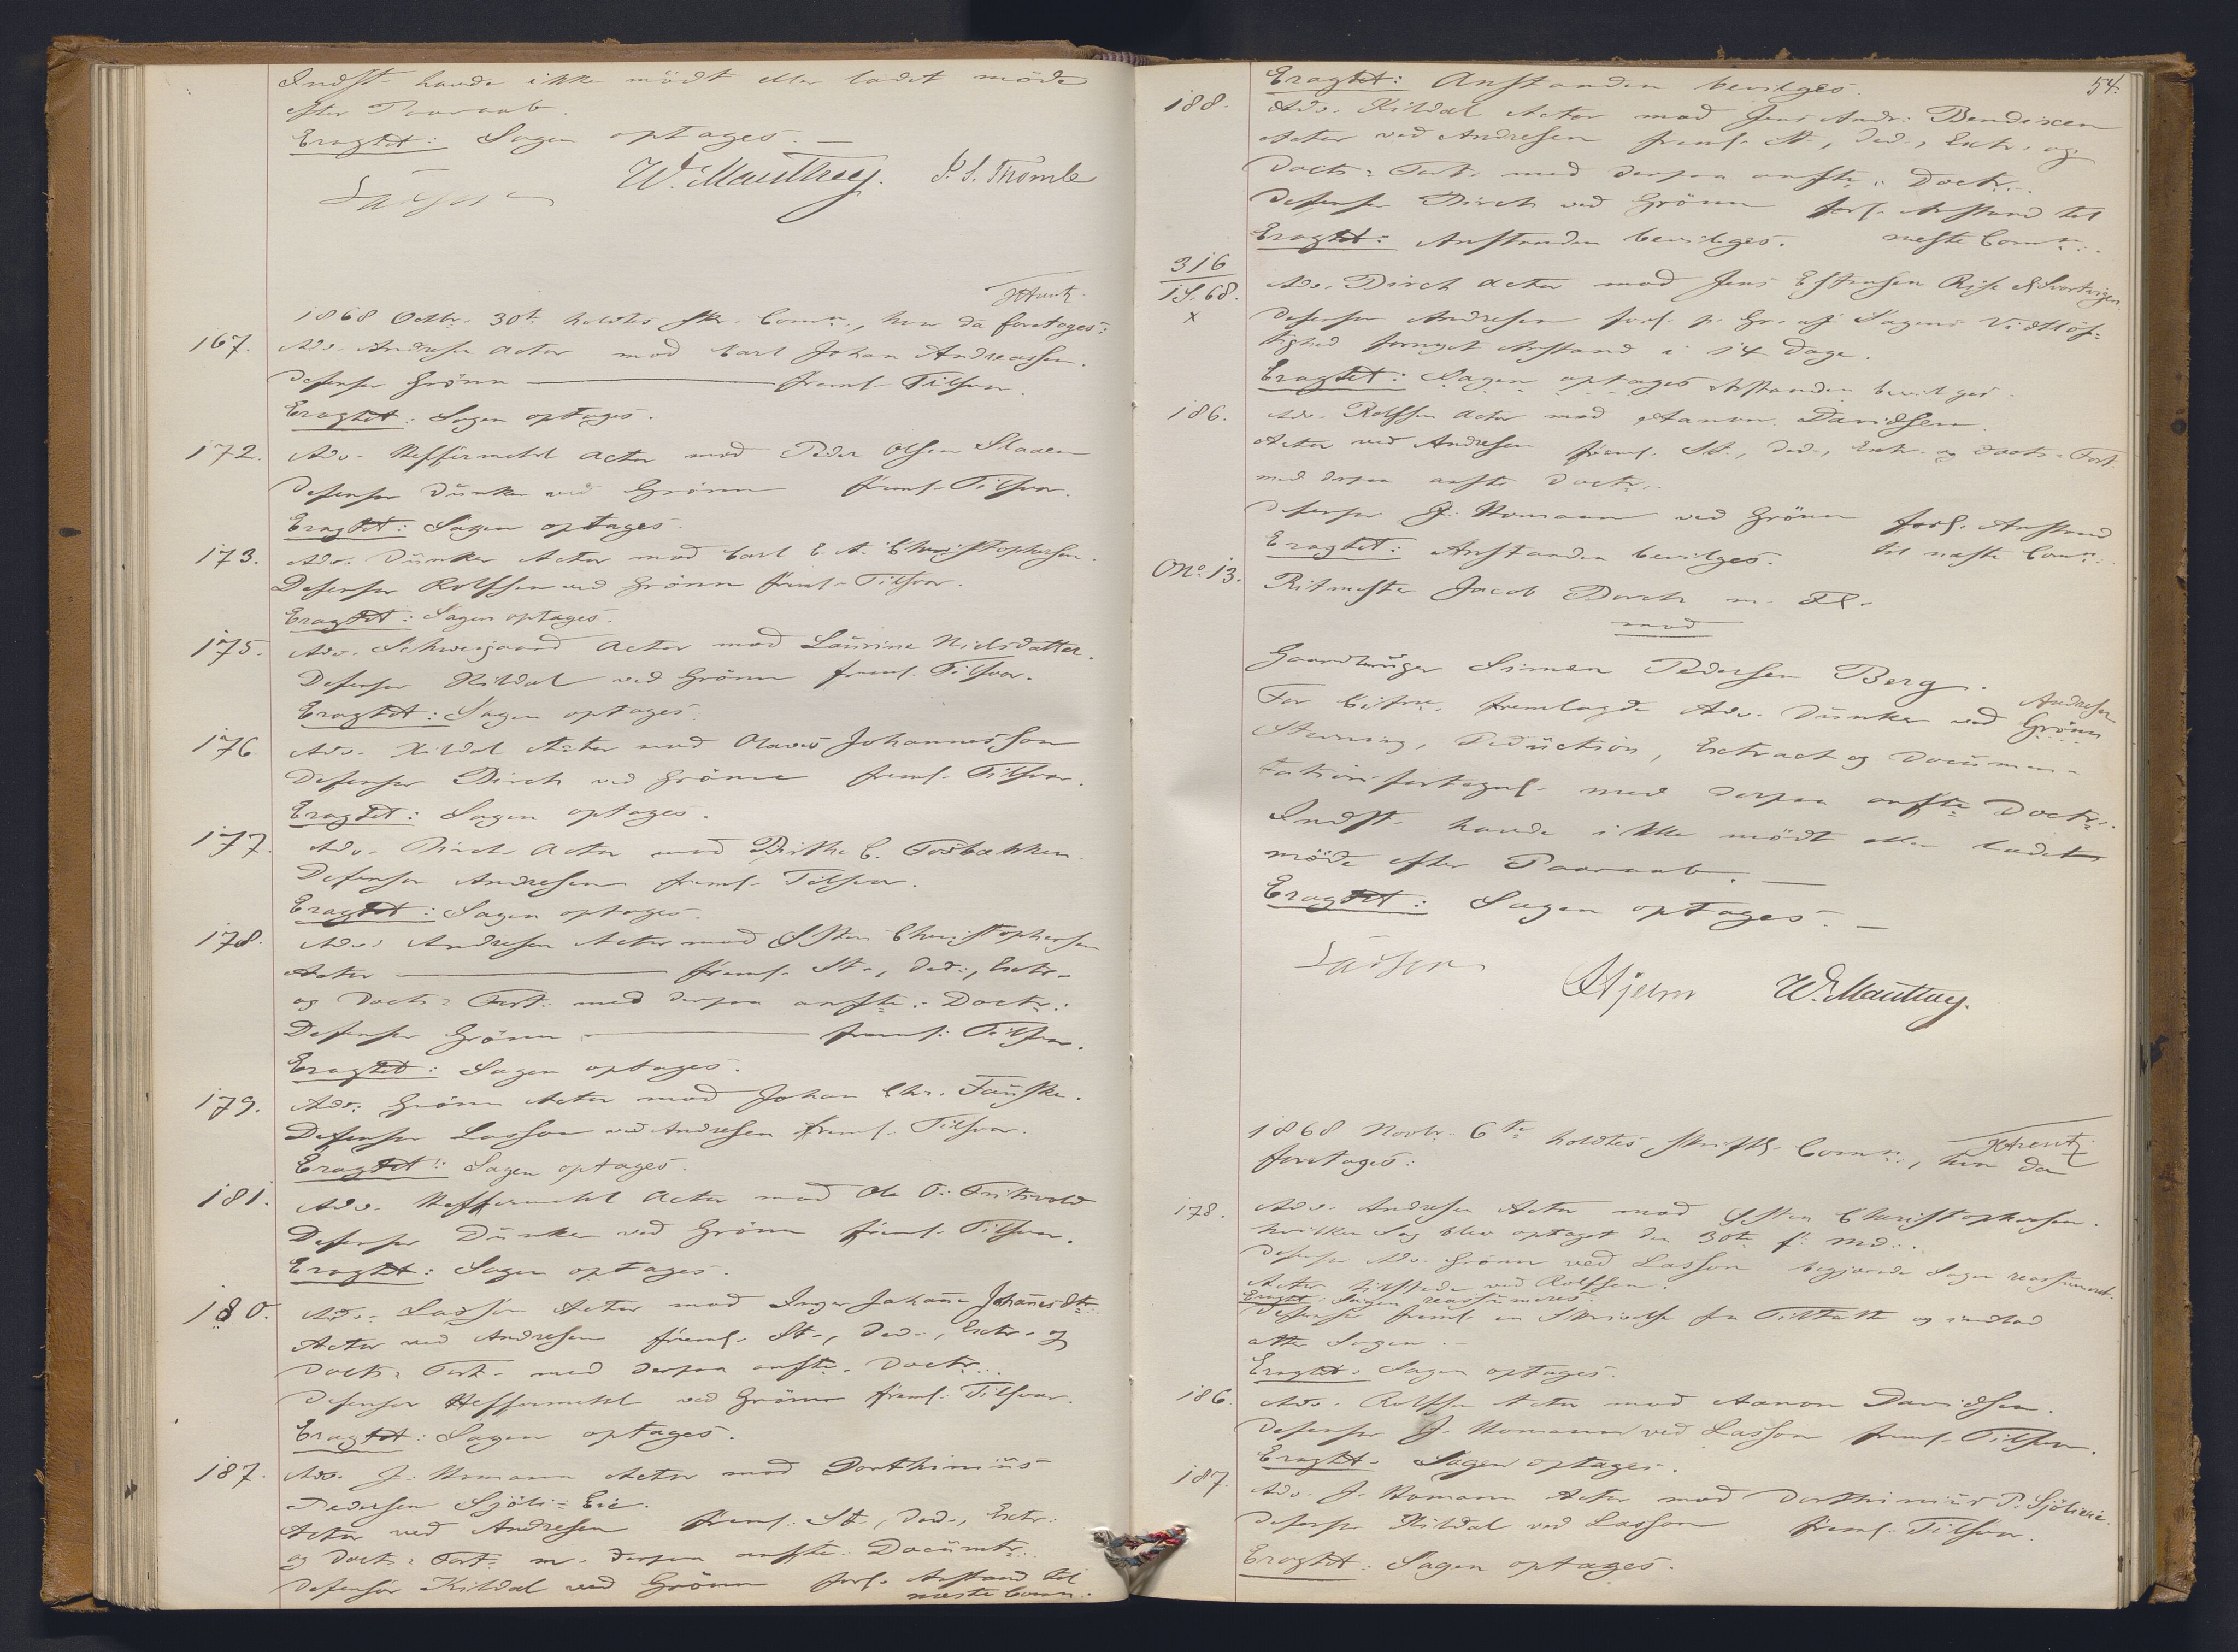 Indst. havde ikke mödt eller ladet möde
efter Paaraab.
Eragtet: Sagen optages.
Lasson W. Manthey. P. S. Thomle
HArentz
1868 Octbr. 30te holdtes skr. Comn:, hvor da foretoges:
167. Adv. Andresen Actor mod Carl Johan Andreassen.
Defensor Grönn ——— freml. Tilsvar.
Eragtet: Sagen optages.
172. Adv. Heffermehl Actor mod Peder Olsen Slaaen
Defensor Dunker ved Grönn freml. Tilsvar.
Eragtet: Sagen optages.
173. Adv. Dunker Actor mod Carl E. A. Christophersen.
Defensor Rolfsen ved Grönn freml. Tilsvar.
Eragtet: Sagen optages.
175. Adv. Schweigaard Actor mod Laurine Nielsdatter.
Defensor Kildal ved Grönn freml. Tilsvar.
Eragtet: Sagen optages.
176. Adv. Kildal Actor mod Olaves Johannesson
Defensor Birch ved Grönn freml. Tilsvar.
Eragtet: Sagen optages.
177. Adv. Birch Actor mod Birthe C. Fosbakken.
Defensor Andresen freml. Tilsvar.
Eragtet: Sagen optages.
178. Adv. Andresen Actor mod Sten Christophersen
Actor ——— freml. St., Ded:, Extr.
og Docts: Fort. med derpaa anfte: Doctr:
Defensor Grönn ——— freml: Tilsvar.
Eragtet: Sagen optages.
179. Adv: Grönn Actor mod Johan Chr. Fauske.
Defensor Lasson ved Andresen freml. Tilsvar.
Eragtet: Sagen optages.
181. Adv. Heffermehl Actor mod Ole O. Fritsvold
Defensor Dunker ved Grönn freml. Tilsvar.
Eragtet: Sagen optages.
180. Adv. Lasson Actor mod Inger Johanne Johannesdtr.
Actor ved Andresen freml. St., Ded., Extr. og
Docts: Fort. med derpaa anfte. Doctr.
Defensor Heffermehl ved Grönn freml. Tilsvar.
Eragtet: Sagen optages.
187. Adv. J. Homann Actor mod Dorthinius
Pedersen Sjöli=Eie.
Actor ved Andresen freml: St., Ded., Extr.
og Docts: Fort: m. derpaa anfte: Documtr.
Defensor Kildal ved Grönn forl. Anstand til
næste Comn:
54.
Eragtet: Anstanden bevilges.
188. Adv. Kildal Actor mod Jens Andr: Bendixen
Actor ved Andresen freml. St., Ded., Extr. og
Docts: Fort. med derpaa anfte: Doctr.
Defensor Birch ved Grönn forl. Anstand til
Eragtet: Anstanden bevilges. neste Comn:
316
1S. 68.
x
Adv. Birch Actor mod Jens Estensen Rise & Svartvigen
Defensor Andresen forl. p. Gr. af Sagens Vidtlöf=
tighed fornyet Anstand i 14 Dage.
Eragtet: Sagen optages Anstanden bevilges.
186. Adv. Rolfsen Actor mod Aanon Davidsen.
Actor ved Andresen freml. St., Ded., Extr. og Docts: Fort.
med derpaa anfte Doctr.
Defensor J. Homann ved Grönn forl. Anstand
Eragtet: Anstanden bevilges. til næste Comn:
No. 13. Ritmester Jacob Borch m. Fl.
mod
Gaardbruger Simen Pedersen Berg.
For Citne. fremlagde Adv. Dunker ved Grönn Andresen
Stevning, Deduction, Extract og Documen=
tationsfortegnl. med derpaa anfte Doctr.
Indst. havde ikke mödt eller ladet
möde efter Paaraab.
Eragtet: Sagen optages.
Lasson Hjelm W. Manthey.
HArentz
1868 Novbr. 6te holdtes skriftl. Comn:, hvor da
foretoges:
178. Adv. Andresen Actor mod Sten Christophersen.
hvilken Sag blev optaget den 30te f. Md.
Defensor Adv. Grönn ved Lasson begjærede Sagen reassumeret.
Actor tilstede ved Rolfsen.
Eragtet: Sagen reassumeres.
Defensor freml. en Skrivelse fra Tiltalte og indlod
atter Sagen.
Eragtet: Sagen optages.
186. Adv. Rolfsen Actor mod Aanon Davidsen.
Defensor J. Homann ved Lasson freml. Tilsvar.
Eragtet. Sagen optages.
187. Adv. J. Homann Actor mod Dorthinius P. Sjölieie.
Defensor Kildal ved Lasson freml. Tilsvar.
Eragtet: Sagen optages.